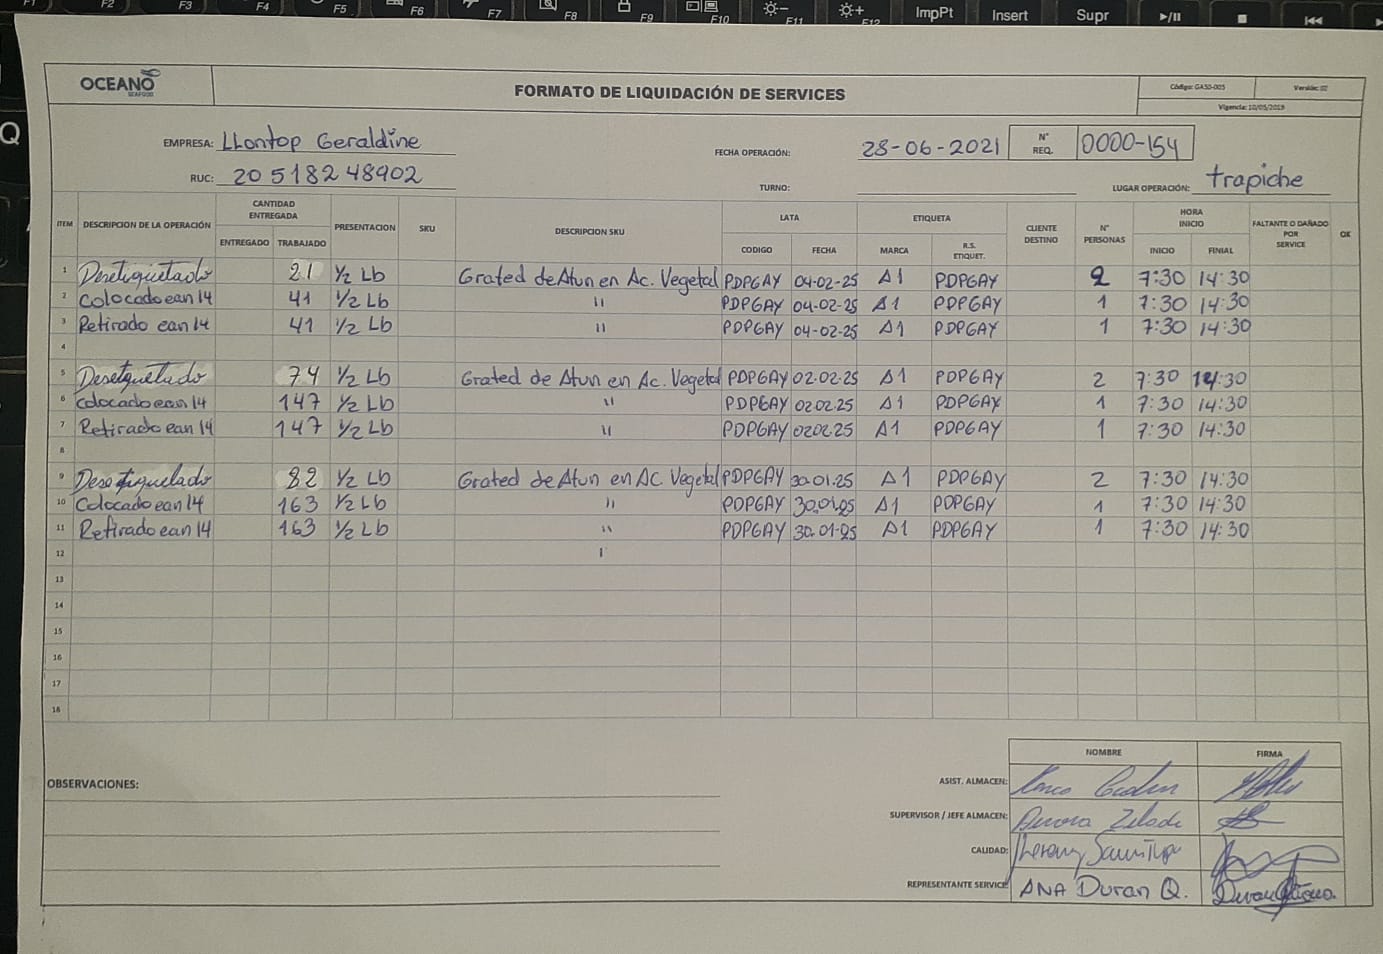 F1 F2 F3 F4 F5 F6 F7 F8 F9 F10 F11 F12 ImpPt Insert Supr
Q
OCEANO
SEAFOOD
FORMATO DE LIQUIDACIÓN DE SERVICES
Código: GASO-005 Versión: 02
Vigencia: 10/05/2019
EMPRESA: Llontop Geraldine
FECHA OPERACIÓN: 28-06-2021
N° REQ. 0000-154
RUC: 20 518248902
TURNO:
LUGAR OPERACIÓN: trapiche
ITEM DESCRIPCION DE LA OPERACIÓN CANTIDAD ENTREGADA PRESENTACION SKU DESCRIPCION SKU LATA ETIQUETA CLIENTE DESTINO N° PERSONAS HORA INICIO FALTANTE O DAÑADO POR SERVICE OK
ENTREGADO TRABAJADO CODIGO FECHA MARCA R.S. ETIQUET. INICIO FINIAL
1 Desetiquetado 21 1/2 Lb Grated de Atun en Ac. Vegetal PDPGAY 04-02-25 A1 PDPGAY 2 7:30 14:30
2 Colocado ean 14 41 1/2 Lb " PDPGAY 04-02-25 A1 PDPGAY 1 7:30 14:30
3 Retirado ean 14 41 1/2 Lb " PDPGAY 04-02-25 A1 PDPGAY 1 7:30 14:30
4
5 Desetquetado 74 1/2 Lb Grated de Atun en Ac. Vegetal PDPGAY 02.02.25 A1 PDPGAY 2 7:30 14:30
6 Colocado ean 14 147 1/2 Lb " PDPGAY 02.02.25 A1 PDPGAY 1 7:30 14:30
7 Retirado ean 14 147 1/2 Lb " PDPGAY 0202.25 A1 PDPGAY 1 7:30 14:30
8
9 Desetiquelado 82 1/2 Lb Grated de Atun en AC. Vegetal PDPGAY 30.01.25 A1 PDPGAY 2 7:30 14:30
10 Colocado ean 14 163 1/2 Lb " PDPGAY 30.01.25 A1 PDPGAY 1 7:30 14:30
11 Retirado ean 14 163 1/2 Lb " PDPGAY 30.01-25 A1 PDPGAY 1 7:30 14:30
12
13
14
15
16
17
18
NOMBRE FIRMA
OBSERVACIONES:
ASIST. ALMACEN:
SUPERVISOR / JEFE ALMACEN:
CALIDAD:
REPRESENTANTE SERVICE: ANA Duran Q.